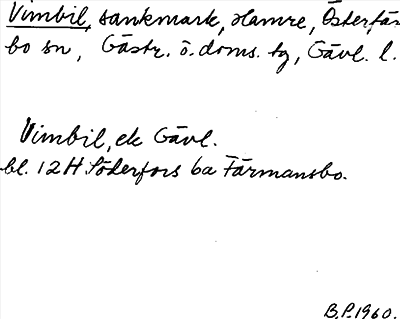 Vimbil, sankmark, Hamre, Österfär-
bo sn, Gästr. ö. doms. tg, Gävl. l.
Vimbil, ek Gävl.
bl. 12H Söderfors 6a Färmansbo.
B.P. 1960.